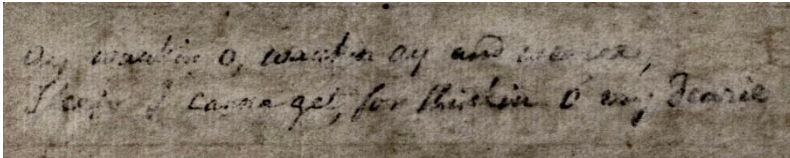 Ay waukin o, waukin ay and wearie,
Sleep I canna get, for thinkin o' my Dearie